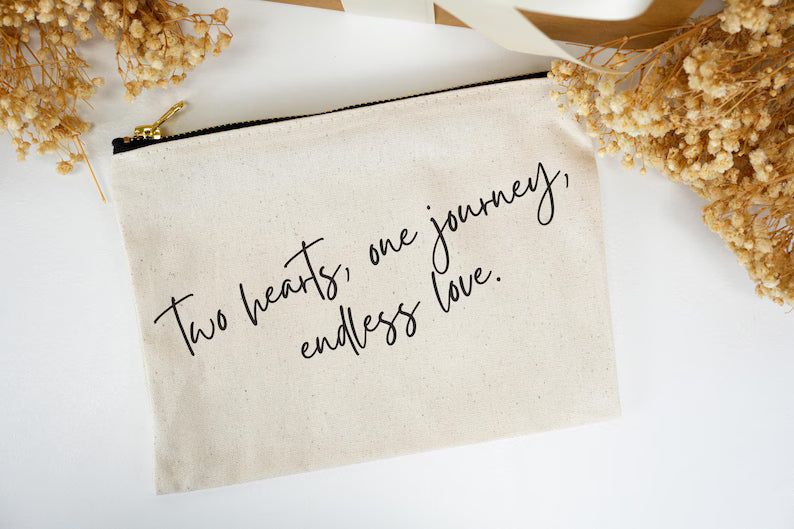 Two hearts, one journey,
endless love.